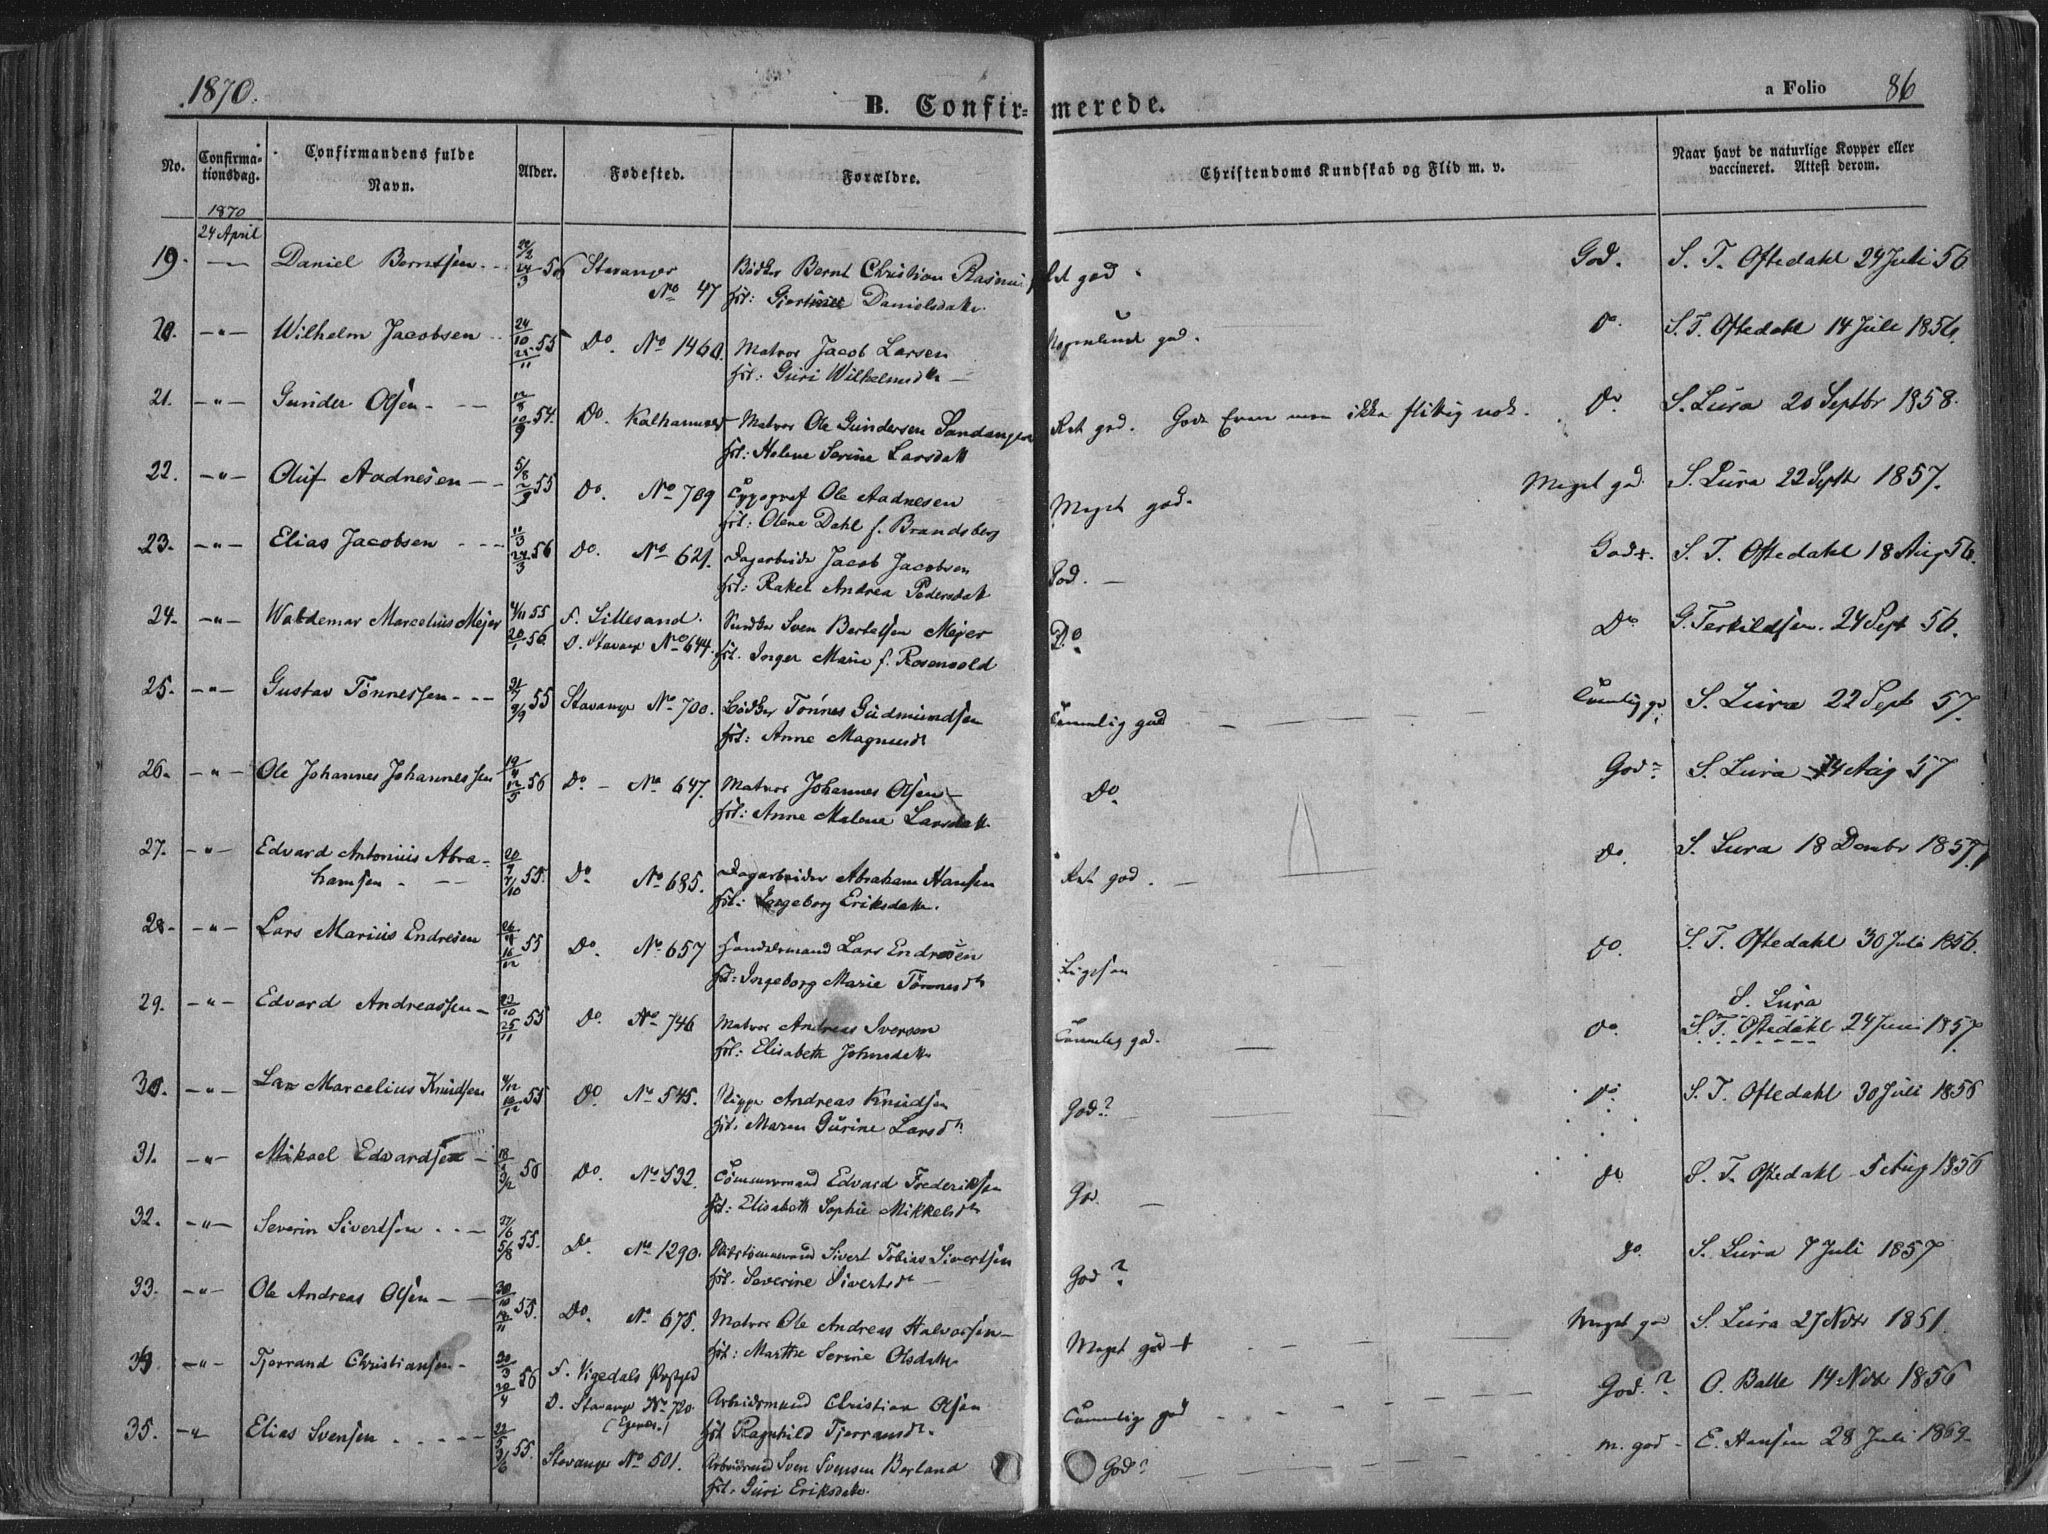 1870.
B. Confir=merede.
a Folio 86
No.
Confirma-tionsdag.
Confirmandens fulde Navn.
Alder.
Fødested.
Forældre.
Christendoms Kundskab og Flid m. v.
Naar havt de naturlige Kopper eller vaccineret. Attest derom.
1870
24 April
19. Daniel Berntsen 56 Stavanger Bødker Bernt Christian God. S. T. Oftedahl 24 Juli 56
24/3 No 47 Danielsdatr Ret god
20. -"- Wilhelm Jacobsen 24/10 25/11 55 Do. No 1460. Matros Jacob Larsen god. Do S. T. Oftedahl 14 Juli 1856.
Guri Wilhelmsdtr
21. -"- Gunder Olsen 12/8 10/9 54. Do. Matros Ole Gundersen Ret god. Gode Evner men ikke flittig nok. Do S. Lura 20 Septbr 1858.
Helene Serine Larsdatr
22. -"- Oluf Aadnesen 5/8 55 Do. No 709 Typograf Ole Aadnesen Meget god. Meget god. S. Lura 22 Septbr 1857.
Olene Dahl f. Brandsberg
23. -"- Elias Jacobsen 11/3 24/3 56 Do. No 621. Dagarbeider Jacob Jacobsen God. God+. S. T. Oftedahl 18 Aug 56.
Rakel Andrea Pedersdatr
24. -"- Waldemar Marcelius Mejer 4/11 55 F. Lillesand. Sven Bertelsen Mejer Do Do G. Terkildsen 24 Sept 56.
20/1 56. D. Stavanger No 644. Inger Marie f. Rosenvold
25. -"- Gustav Tønnessen 9/9 55 Stavanger No 700. Bødker Tønnes Gudmundsen Temmelig god S. Lura 22 Sept 57.
Anne Magnusdtr
26. -"- Ole Johannes Johannessen 19/4 12/5 56 Do - No 647. Matros Johannes Olsen Do God? S. Lura 14 Aug 57
Anne Malene Larsdatr
27. -"- Edvard Antonius Abrahamsen 20/9 7/10 55. Do No 685. Dagarbeider Abraham Hansen Ret god. do. S. Lura 18 Decmbr 1857
Ingeborg Eriksdatr.
28. -"- Lars Marius Endresen 16/12 55 Do No 657 Lars Endresen Ligesom do. S. T. Oftedahl 30 Juli 1856.
Ingeborg Marie Tønnesdtr
29. -"- Edvard Andreassen 22/10 25/11 55 Do. No 746 Matros Andreas Iversen Temmelig god. do. S. Lura
Elisabeth Johnsdatr S. T. Oftedahl 24 Juni 1857.
30. -"- Lars Marcelius Knudsen 4/12 55 Do No 545. Andreas Knudsen God? do S. T. Oftedahl 30 Juli 1856
Maren Gurine Larsdtr
31. -"- Mikael Edvardsen 56 Do No 532. Tømmermand Edvard Frederiksen God do S. T. Oftedahl 5 Aug 1856
Elisabeth Sophie Mikkelsdtr
32. -"- Severin Sivertsen 27/6 5/8 55. Do. No 1290. Sivert Tobias Sivertsen God? do. S. Lura 7 Juli 1857
Severine Sivertsdtr
33. -"- Ole Andreas Olsen 30/10 55. Do. No 675. Matros Ole Andreas Halvorsen Meget god + Meget god S. Lura 27 Novbr 1851.
Marthe Serine Olsdatr
34. -"- Tjerrand Christiansen 30/3 20/4 56 F. Vigedals Arbeidsmand Christian Olsen Temmelig god God? O. Balle 14 Novbr 1856
D. Stavanger No 720. Ragnhild Tjerransdtr
35. -"- Elias Svensen 55. Stavanger No 501. Arbeidsmand Sven Svensen Berland God? m. god - E. Hansen 28 Juli 1869.
Guri Eriksdatr.